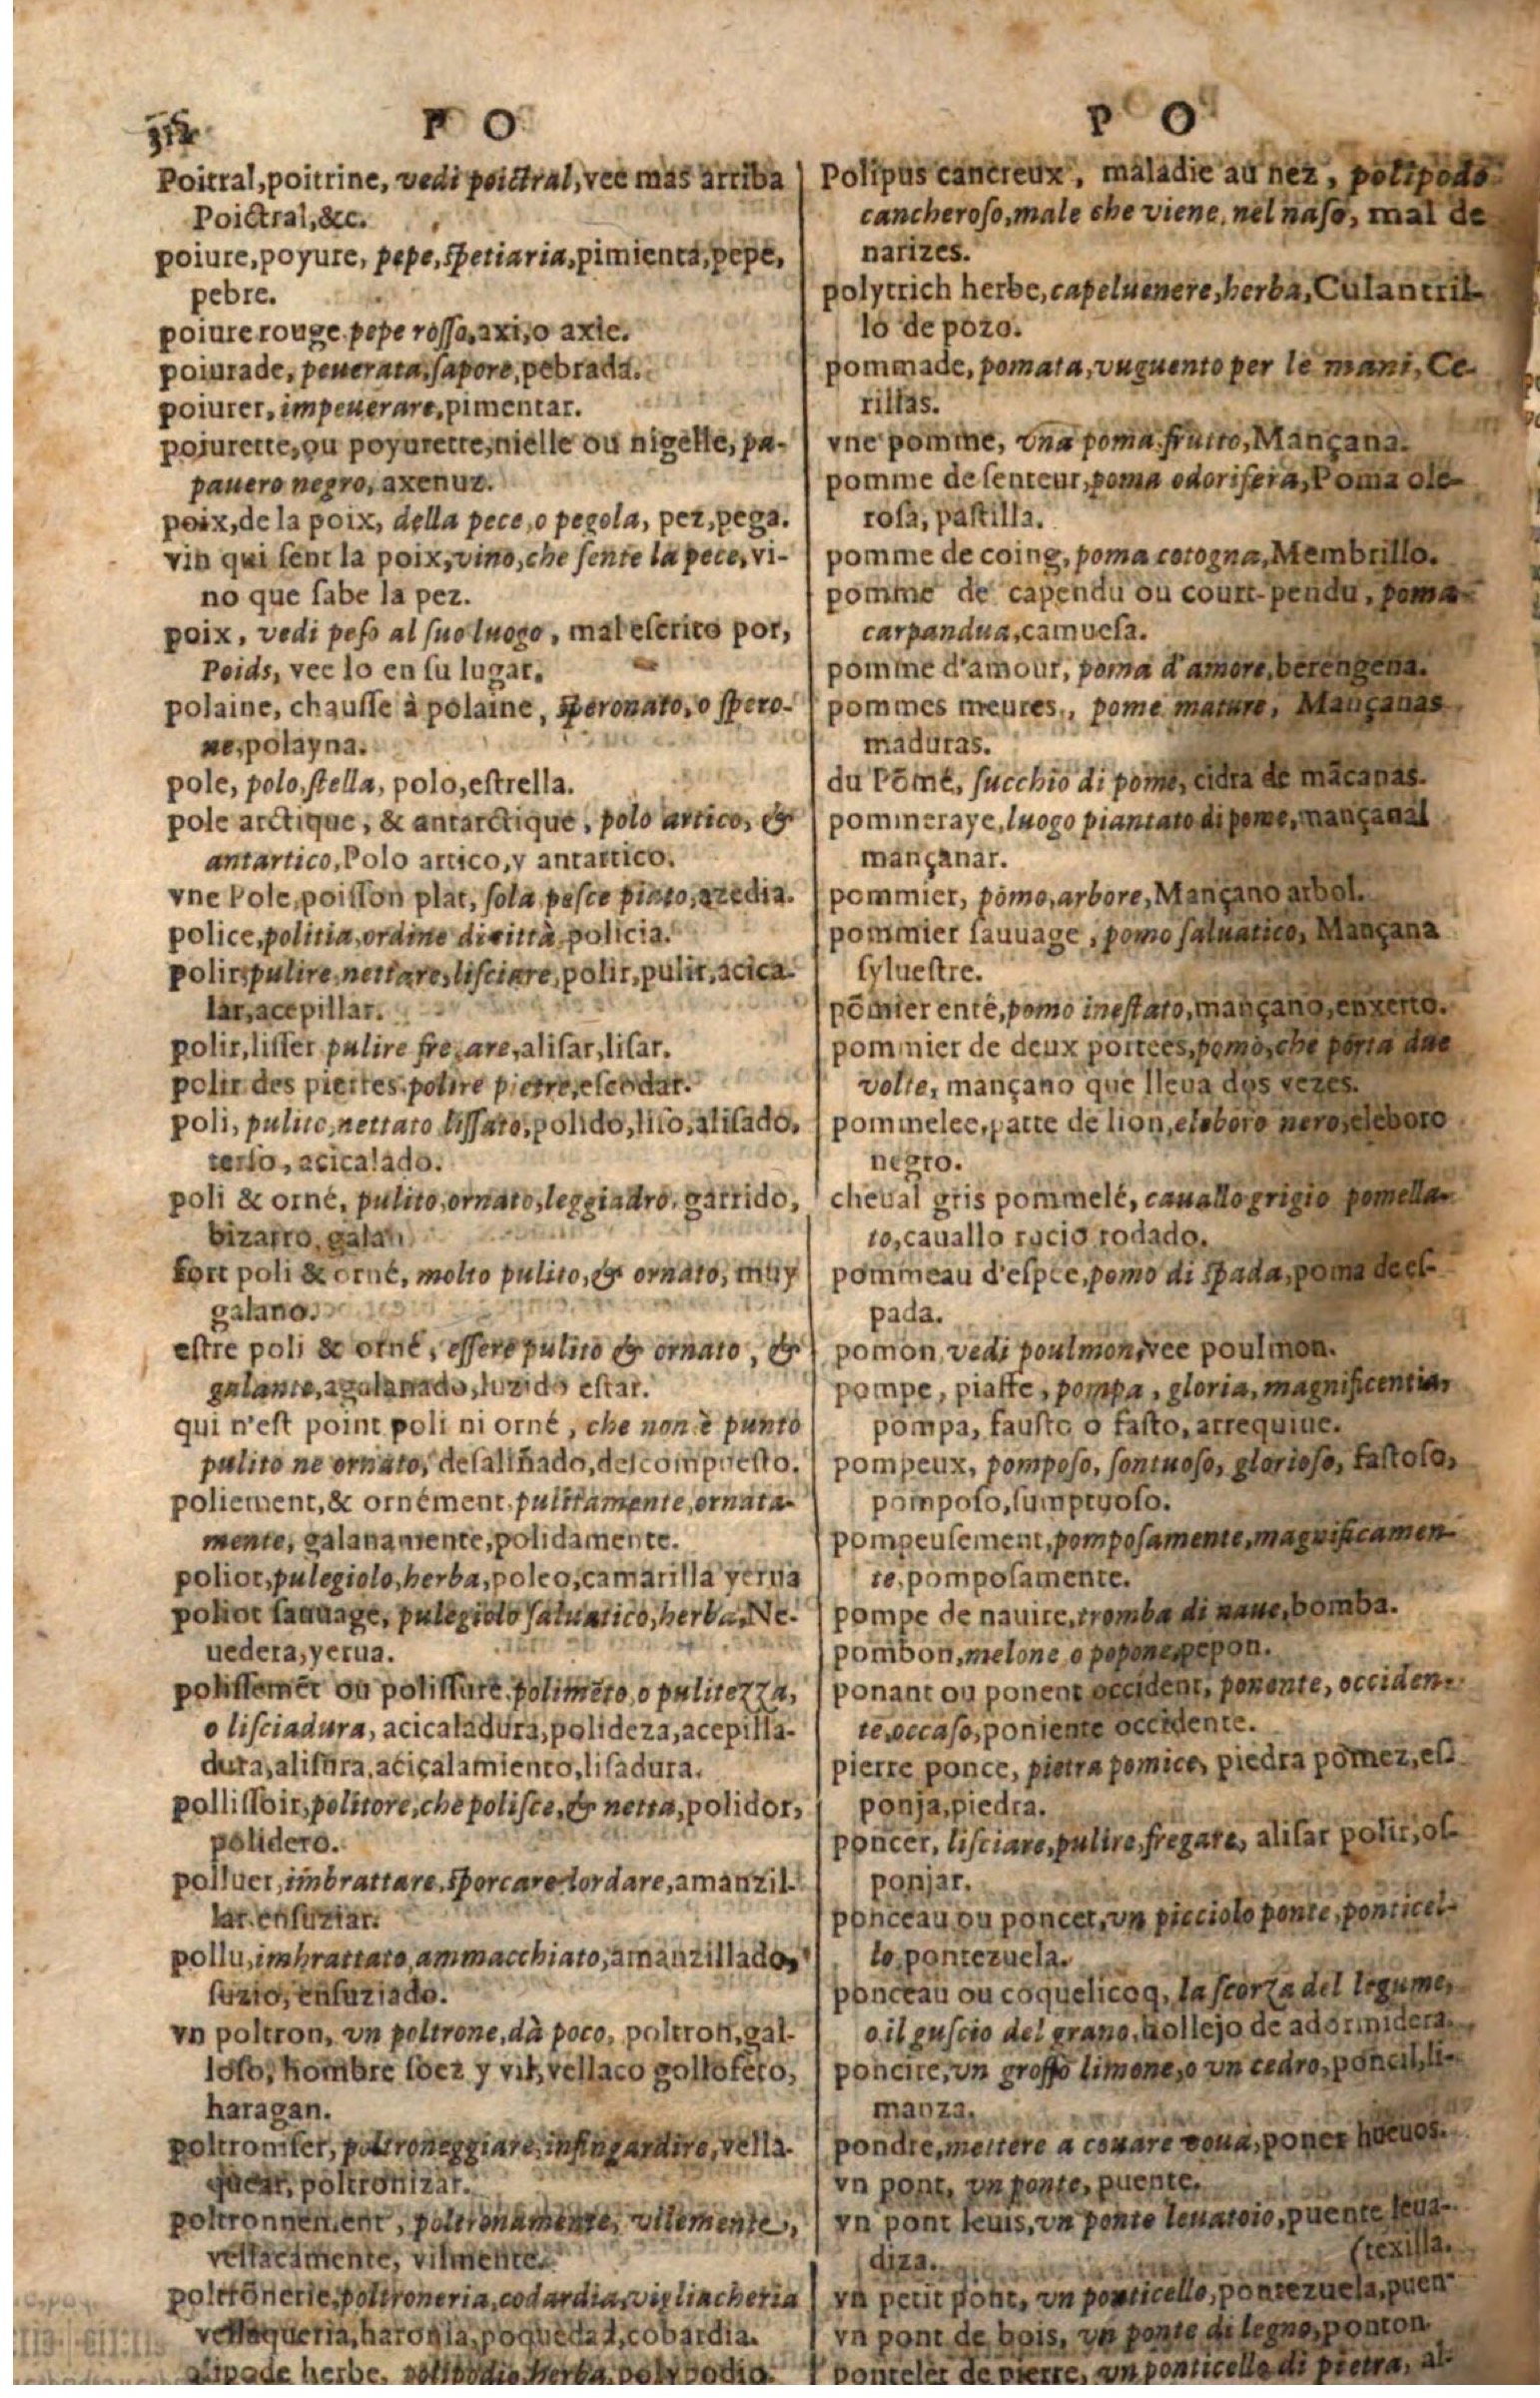 P O
Poitral, poitrine, vedi poictral, vee mas arriba
Poictral, &c.
poiure, poyure, pepe, spetiaria, pimienta, pepe,
pebre.
poiure rouge pepe rosso, axi, o axie.
poiurade, peuerata, sapore, pebrada.
poiurer, impeuerare, pimentar.
poiurette, ou poyurette, nielle ou nigelle, pa-
pauero negro, axenuz.
poix, de la poix, della pece, o pegola, pez, pega.
vin qui sent la poix, vino, che sente la pece, vi-
no que sabe la pez.
poix, vedi peso al suo luogo, mal escrito por,
Poids, vee lo en su lugar.
polaine, chausse à polaine, speronato, o spero-
ne, polayna.
pole, polo, stella, polo, estrella.
pole arctique, & antarctique, polo artico, &
antartico, Polo artico, y antartico.
vne Pole, poisson plat, sola pesce piato, azedia.
police, politia, ordine di città, policia.
polir, pulire, nettare, lisciare, polir, pulir, acica-
lar, acepillar.
polir, lisser pulire fregare, alisar, lisar.
polir des pierres, polire pietre, escodar.
poli, pulito, nettato lissato, polido, liso, alisado,
terso, acicalado.
poli & orné, pulito, ornato, leggiadro, garrido,
bizarro, galan
fort poli & orné, molto pulito, & ornato, muy
galano.
estre poli & orné, essere pulito & ornato, &
galante, agalanado, luzido estar.
qui n'est point poli ni orné, che non è punto
pulito ne ornato, desaliñado, descompuesto.
poliement, & ornément, pulitamente, ornata-
mente, galanamente, polidamente.
poliot, pulegiolo, herba, poleo, camarilla yerua
poliot sauuage, pulegiolo saluatico, herba, Ne-
uedera, yerua.
polissemēt ou polissure, polimēto, o pulitezza,
o lisciadura, acicaladura, polideza, acepilla-
dura, alisura, acicalamiento, lisadura.
pollissoir, politore, che polisce, & netta, polidor,
polidero.
polluer, imbrattare, sporcare lordare, amanzil-
lar, ensuziar.
pollu, imbrattato, ammacchiato, amanzillado,
suzio, ensuziado.
vn poltron, vn poltrone, dà poco, poltron, gal-
loso, hombre soez y vil, vellaco gollofero,
haragan.
poltroniser, poltroneggiare, infingardire, vella-
quear, poltronizar.
poltronnement, poltronamente, vilemente,
vellacamente, vilmente.
poltrōnerie, poltroneria, codardia, vigliacheria
vellaqueria, haronia, poquedad, cobardia.
herbe, polipodio, herba, polypodio.
P O
Polipus cancreux, maladie au nez, polipodo
cancheroso, male che viene, nel naso, mal de
narizes.
polytrich herbe, capeluenere, herba, Culantril-
lo de pozo.
pommade, pomata, vnguento per le mani, Ce-
rillas.
vne pomme, vna poma frutto, Mançana.
pomme de senteur, poma odorifera, Poma olo-
rosa, pastilla.
pomme de coing, poma cotogna, Membrillo.
pomme de capendu ou court-pendu, poma
carpandua, camuesa.
pomme d'amour, poma d'amore, berengena.
pommes meures, pome mature, Mançanas
maduras.
du Pōmé, succhio di pome, cidra de mācanas.
pommeraye, luogo piantato di pome, mançanal
mançanar.
pommier, pomo, arbore, Mançano arbol.
pommier sauuage, pomo saluatico, Mançana
syluestre.
pōmier enté, pomo inestato, mançano, enxerto.
pommier de deux portees, pomo, che porta due
volte, mançano que lleua dos vezes.
pommelee, patte de lion, eleboro nero, eleboro
negro.
cheual gris pommelé, cauallo grigio pomella-
to, cauallo rucio rodado.
pommeau d'espee, pomo di spada, poma de es-
pada.
pomon, vedi poulmon, vee poulmon.
pompe, piaffe, pompa, gloria, magnificentia,
pompa, fausto o fasto, arrequiue.
pompeux, pomposo, sontuoso, glorioso, fastoso,
pomposo, sumptuoso.
pompeusement, pomposamente, magnificamen-
te, pomposamente.
pompe de nauire, tromba di naue, bomba.
pombon, melone o popone, pepon.
ponant ou ponent occident, ponente, occiden-
te, occaso, poniente occidente.
pierre ponce, pietra pomice, piedra pomez, es-
ponja, piedra.
poncer, lisciare, pulire, fregare, alisar polir, os-
ponjar.
ponceau ou poncet, vn picciolo ponte, ponticel-
lo, pontezuela.
ponceau ou coquelicoq, la scorza del legume,
o il guscio del grano, hollejo de adormidera.
poncire, vn grosso limone, o vn cedro, poncil, li-
manza.
pondre, mettere a couare voua, poner hueuos.
vn pont, vn ponte, puente.
vn pont leuis, vn ponte leuatoio, puente leua-
diza. (tezilla.
vn petit pont, vn ponticello, pontezuela, puen-
vn pont de bois, vn ponte di legno, ponton
pontelet de pierre, vn ponticello di pietra, al-